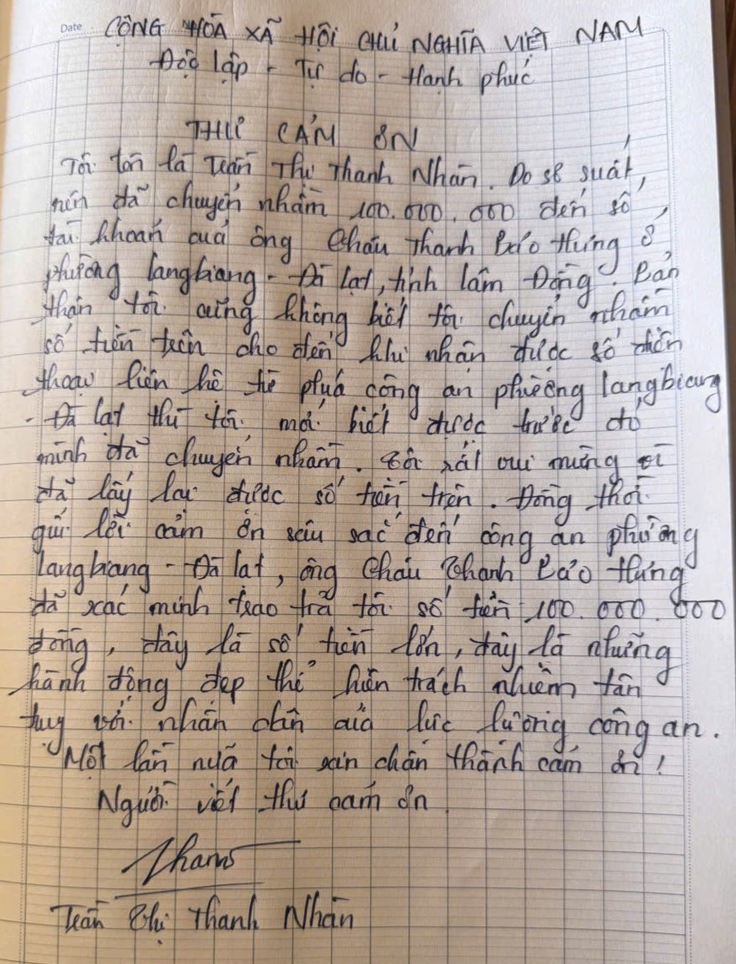 Date
CỘNG HÒA XÃ HỘI CHỦ NGHĨA VIỆT NAM
Độc lập - Tự do - Hạnh phúc
THƯ CẢM ƠN
Tôi tên là Trần Thị Thanh Nhàn. Do sơ suất,
nên đã chuyển nhầm 100.000.000 đến số
tài khoản của ông Châu Thanh Bảo Hưng ở
phường langbiang - Đà Lạt, tỉnh lâm Đồng. Bản
thân tôi cũng không biết tôi chuyển nhầm
số tiền trên cho đến khi nhận được số điện
thoại liên hệ từ phía công an phường langbiang
- Đà lạt thì tôi mới biết được trước đó
mình đã chuyển nhầm. Tôi rất vui mừng vì
đã lấy lại được số tiền trên. Đồng thời
gửi lời cảm ơn sâu sắc đến công an phường
langbiang - Đà lạt, ông Châu Thanh Bảo Hưng
đã xác minh trao trả tôi số tiền 100.000.000
đồng, đây là số tiền lớn, đây là những
hành động đẹp thể hiện trách nhiệm tận
tụy với nhân dân của lực lượng công an.
Một lần nữa tôi xin chân thành cảm ơn!
Người viết thư cảm ơn
Nhàn
Trần Thị Thanh Nhàn